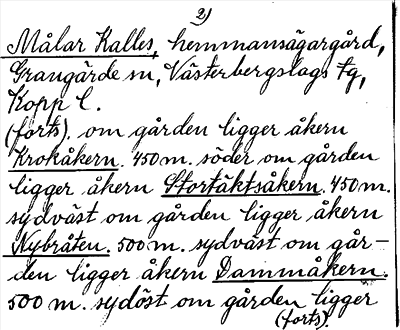 2)
Målar Kalles, hemmansägargård,
Grangärde sn, Västerbergslags tg,
Kopp l.
(forts). om gården ligger åkern
Krokåkern. 450 m. söder om gården
ligger åkern Stortäktsåkern. 450 m.
sydväst om gården ligger åkern
Nybråten. 500 m. sydväst om går-
den ligger åkern Dammåkern.
500 m. sydöst om gården ligger
(forts).